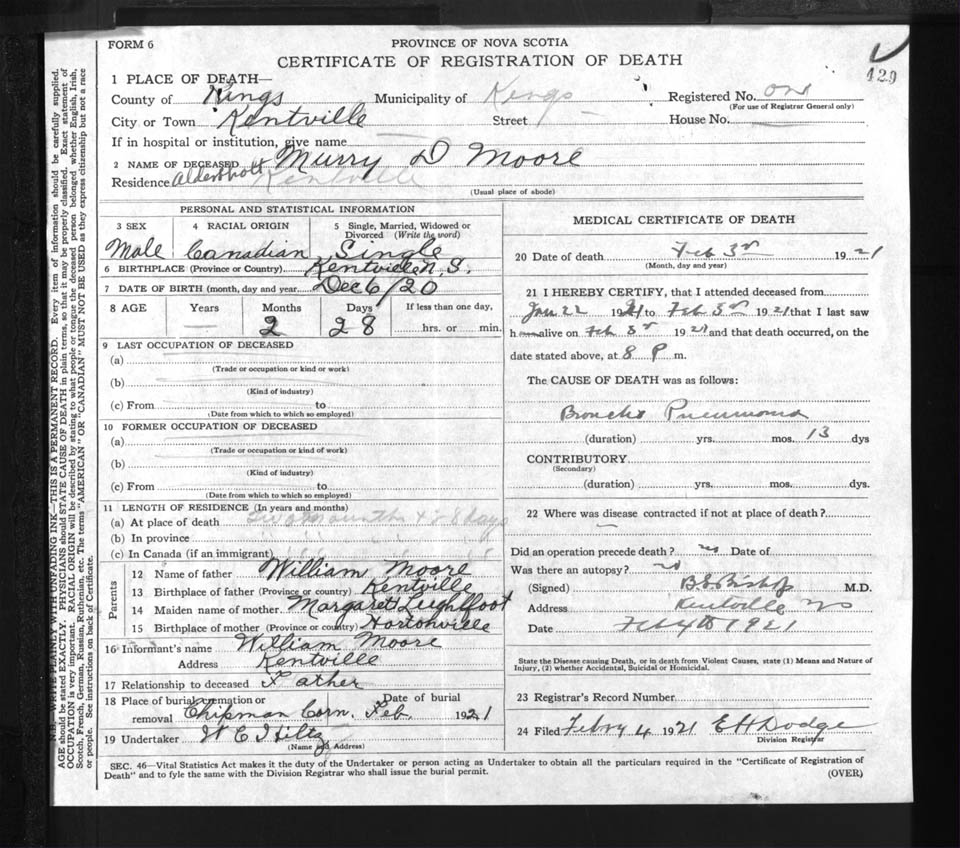 FORM 6
PROVINCE OF NOVA SCOTIA
CERTIFICATE OF REGISTRATION OF DEATH
429
1 PLACE OF DEATH—
County of Kings Municipality of Kings Registered No. one
(For use of Registrar General only)
City or Town Kentville Street House No.
If in hospital or institution, give name
2 NAME OF DECEASED Murry D Moore
Residence Aldershott Kentville
(Usual place of abode)
PERSONAL AND STATISTICAL INFORMATION
3 SEX 4 RACIAL ORIGIN 5 Single, Married, Widowed or Divorced (Write the word)
Male Canadian Single
6 BIRTHPLACE (Province or Country) Kentville N. S.
7 DATE OF BIRTH (month, day and year) Dec 6/20
8 AGE Years Months Days If less than one day,
2 28 hrs. or min.
9 LAST OCCUPATION OF DECEASED
(a)
(Trade or occupation or kind or work)
(b)
(Kind of industry)
(c) From to
(Date from which to which so employed)
10 FORMER OCCUPATION OF DECEASED
(a)
(Trade or occupation or kind of work)
(b)
(Kind of industry)
(c) From to
(Date from which to which so employed)
11 LENGTH OF RESIDENCE (In years and months)
(a) At place of death two months & 28 days
(b) In province " " " "
(c) In Canada (if an immigrant) " " " "
Parents
12 Name of father William Moore
13 Birthplace of father (Province or country) Kentville
14 Maiden name of mother Margaret Leighfoot
15 Birthplace of mother (Province or country) Hortonville
16 Informant's name William Moore
Address Kentville
17 Relationship to deceased Father
18 Place of burial, cremation or removal Chipman Corn. Date of burial Feb. 1921
19 Undertaker W E Hiltz
(Name and Address)
MEDICAL CERTIFICATE OF DEATH
20 Date of death Feb 3rd 1921
(Month, day and year)
21 I HEREBY CERTIFY, that I attended deceased from
Jan 22 1921 to Feb 3rd 1921 that I last saw
h alive on Feb 3rd 1921 and that death occurred, on the
date stated above, at 8 P m.
The CAUSE OF DEATH was as follows:
Broncho Pneumonia
(duration) yrs. mos. 13 dys
CONTRIBUTORY
(Secondary)
(duration) yrs. mos. dys.
22 Where was disease contracted if not at place of death?
Did an operation precede death? no Date of
Was there an autopsy? no
(Signed) B.S. Bishop M.D.
Address Kentville NS
Date Feb 4th 1921
State the Disease causing Death, or in death from Violent Causes, state (1) Means and Nature of
Injury, (2) whether Accidental, Suicidal or Homicidal.
23 Registrar's Record Number
24 Filed Febry 4 1921 E H Dodge
Division Registrar
SEC. 46—Vital Statistics Act makes it the duty of the Undertaker or person acting as Undertaker to obtain all the particulars required in the "Certificate of Registration of
Death" and to fyle the same with the Division Registrar who shall issue the burial permit.
(OVER)
N.B.—WRITE PLAINLY WITH UNFADING INK—THIS IS A PERMANENT RECORD. Every item of information should be carefully supplied.
AGE should be stated EXACTLY. PHYSICIANS should STATE CAUSE OF DEATH in plain terms, so that it may be properly classified. Exact statement of
OCCUPATION is very important. RACIAL ORIGIN will be described by stating to what people or tongue the deceased person belonged whether English, Irish,
Scotch, French, German, Russian, Ruthenian, etc. The terms "AMERICAN" OR "CANADIAN" MUST NOT BE USED as they express citizenship but not a race
or people. See instructions on back of Certificate.